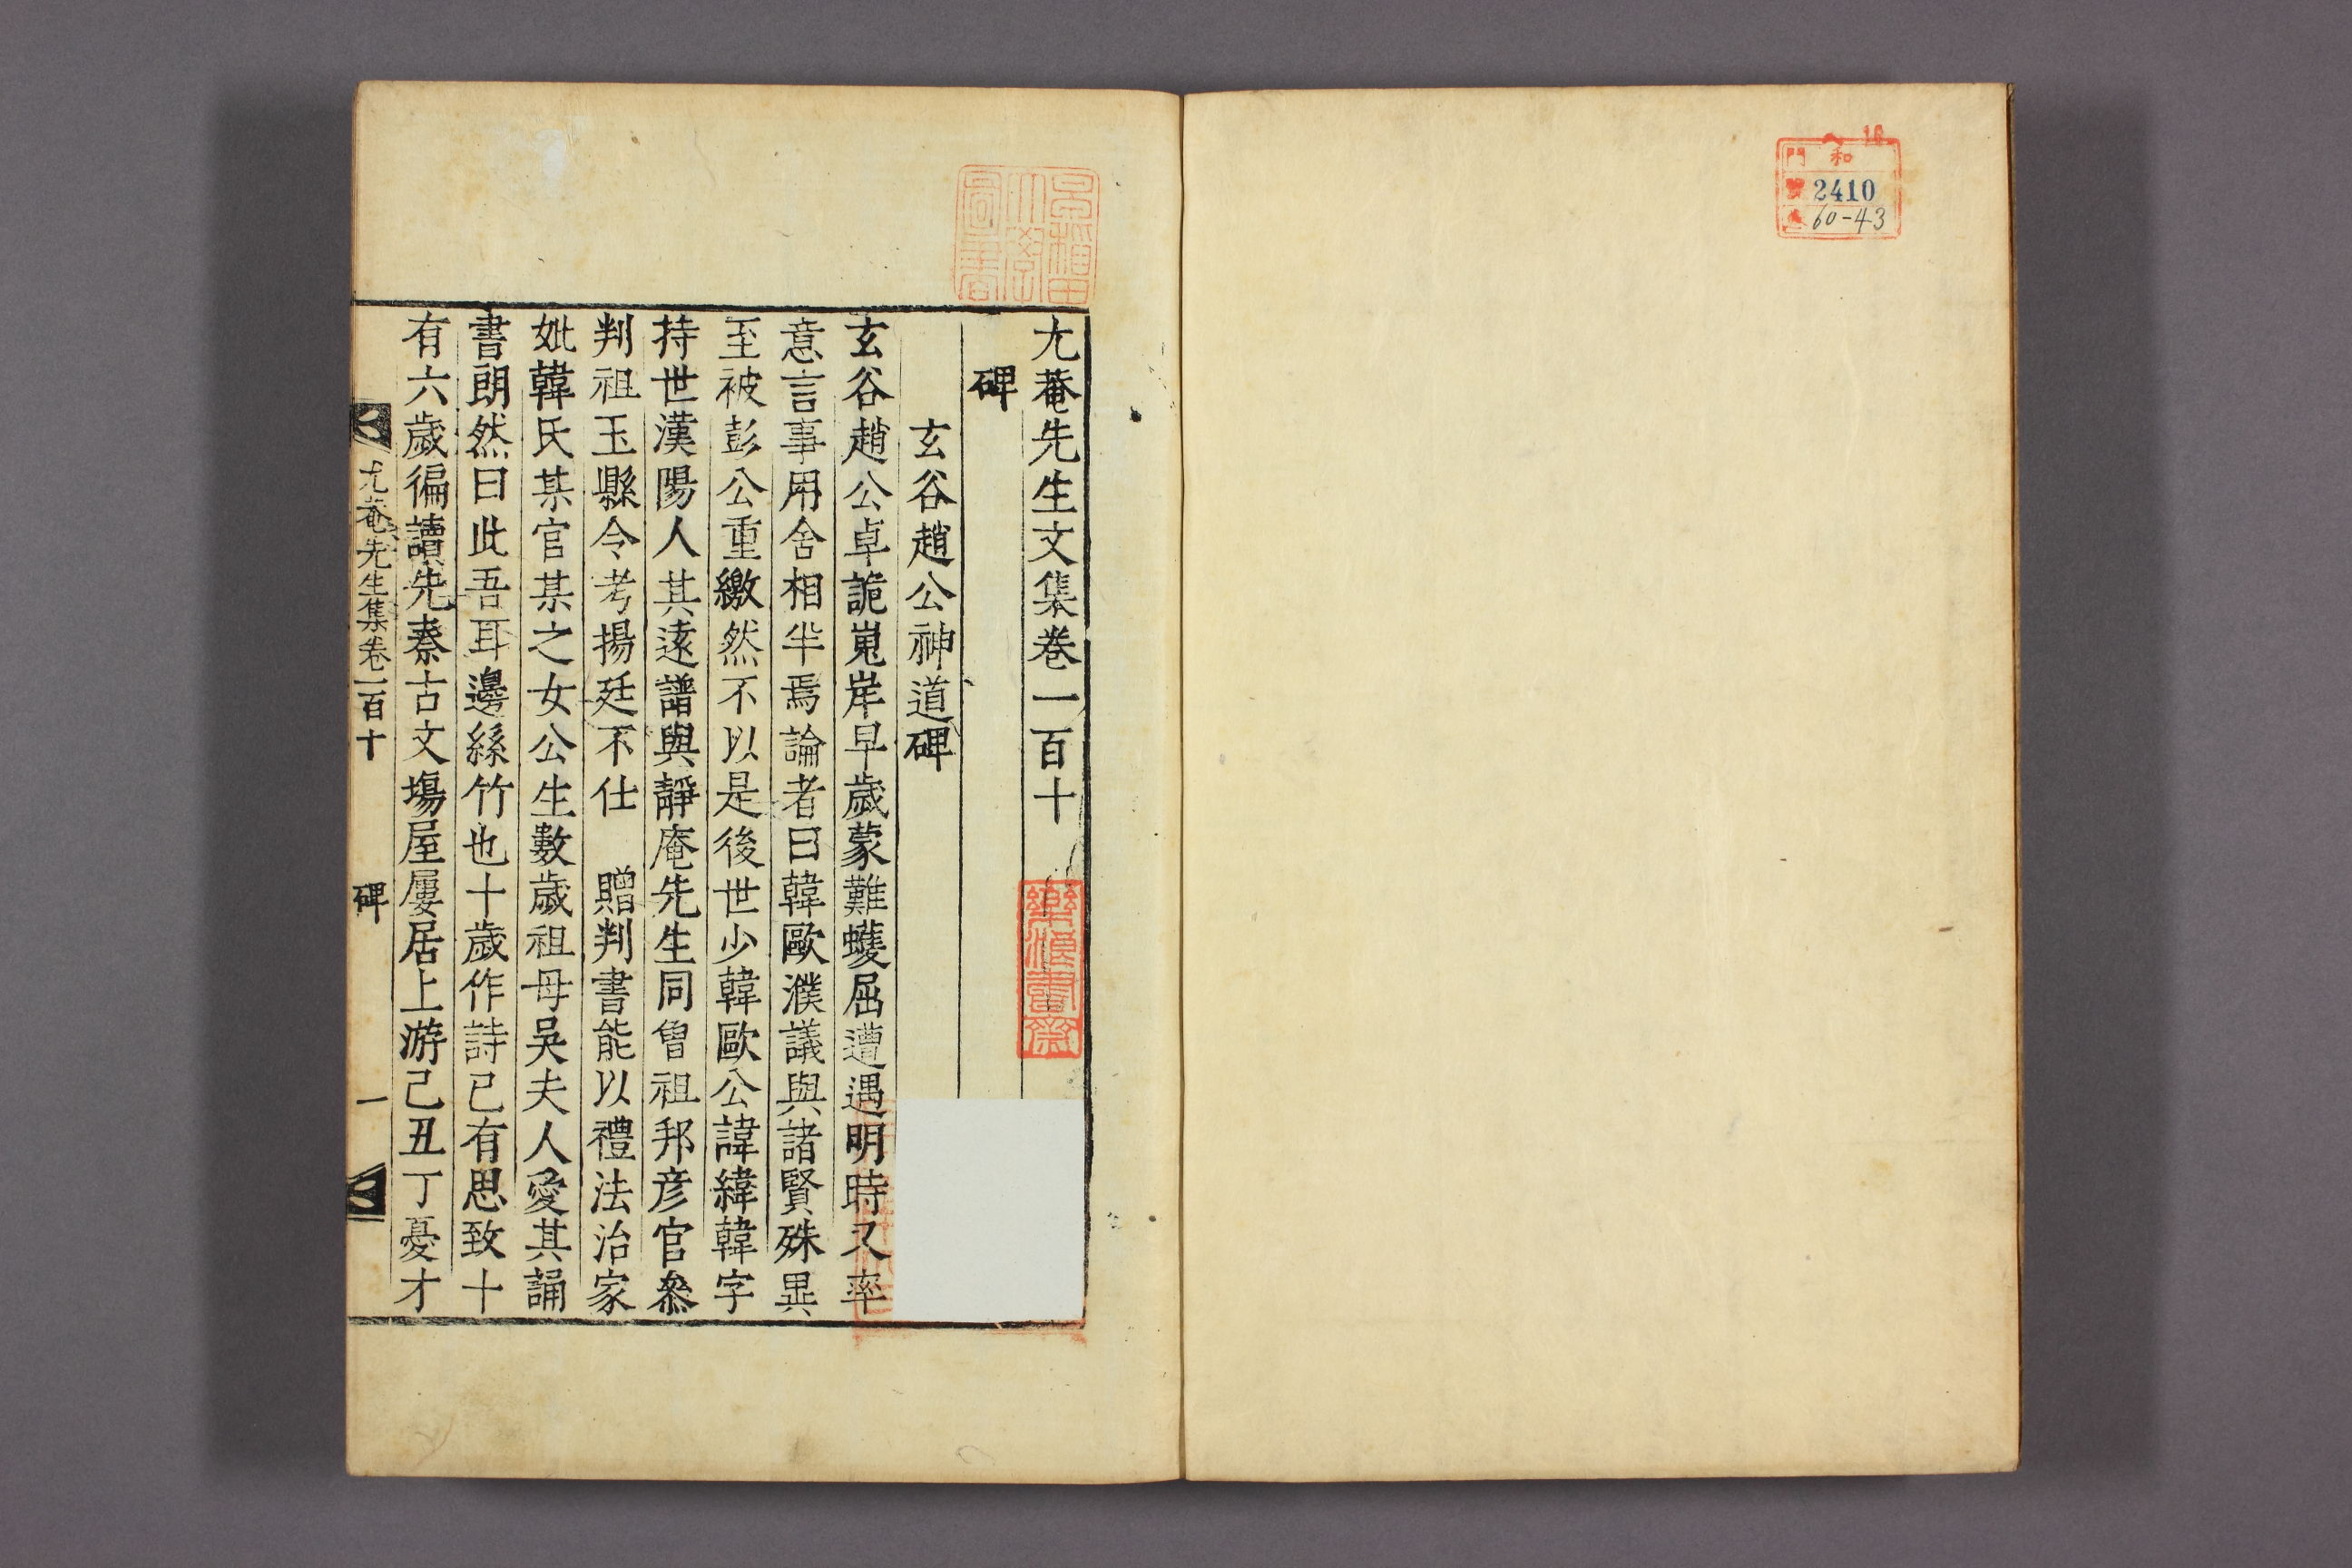 和
門
2410
60-43
早稲田
大學
圖書
尤菴先生文集卷一百十
碑
玄谷趙公神道碑
玄谷趙公卓詭嵬岸早歲蒙難蠖屈遭遇明時又率
意言事用舍相半焉論者曰韓歐濮議與諸賢殊異
至被彭公重繳然不以是後世少韓歐公諱緯韓字
持世漢陽人其遠譜與靜庵先生同曾祖邦彦官叅
判祖玉縣令考揚廷不仕 贈判書能以禮法治家
妣韓氏某官某之女公生數歲祖母吳夫人愛其誦
書朗然曰此吾耳邊絲竹也十歲作詩已有思致十
有六歲徧讀先秦古文塲屋屢居上游己丑丁憂才
尤菴先生集卷一百十 碑 一